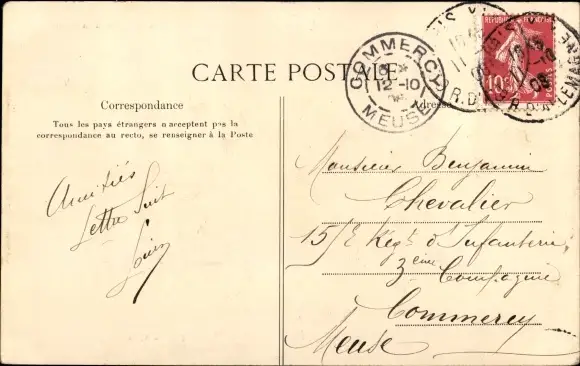 CARTE POSTALE
Correspondance
Tous les pays étrangers n acceptent pas la
correspondance au recto, se renseigner à la Poste
Adresse
REPUBLIQUE FRANÇAISE
10c
COMMERCY
12-10
MEUSE
PARIS
11-10
08
R. D'ALLEMAGNE
Amitiés
Lettre Suit
Monsieur Benjamin
Chevalier
15 Régt d'Infanterie,
3ème Compagnie
Commercy
Meuse